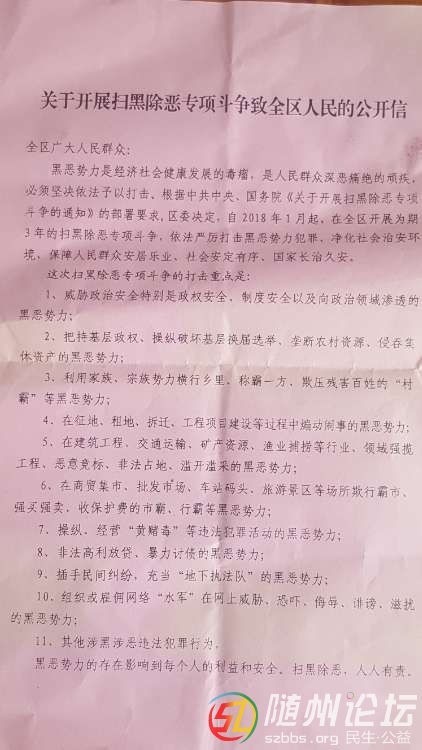 关于开展扫黑除恶专项斗争致全区人民的公开信
全区广大人民群众:
黑恶势力是经济社会健康发展的毒瘤,是人民群众深恶痛绝的顽疾,
必须坚决依法予以打击。根据中共中央、国务院《关于开展扫黑除恶专项
斗争的通知》的部署要求,区委决定,自2018年1月起,在全区开展为期
3年的扫黑除恶专项斗争,依法严厉打击黑恶势力犯罪,净化社会治安环
境,保障人民群众安居乐业、社会安定有序、国家长治久安。
这次扫黑除恶专项斗争的打击重点是:
1、威胁政治安全特别是政权安全、制度安全以及向政治领域渗透的
黑恶势力;
2、把持基层政权、操纵破坏基层换届选举、垄断农村资源、侵吞集
体资产的黑恶势力;
3、利用家族、宗族势力横行乡里、称霸一方、欺压残害百姓的“村
霸”等黑恶势力;
4、在征地、租地、拆迁、工程项目建设等过程中煽动闹事的黑恶势力;
5、在建筑工程、交通运输、矿产资源、渔业捕捞等行业、领域强揽
工程、恶意竞标、非法占地、滥开滥采的黑恶势力;
6、在商贸集市、批发市场、车站码头、旅游景区等场所欺行霸市、
强买强卖、收保护费的市霸、行霸等黑恶势力;
7、操纵、经营“黄赌毒”等违法犯罪活动的黑恶势力;
8、非法高利放贷、暴力讨债的黑恶势力;
9、插手民间纠纷,充当“地下执法队”的黑恶势力;
10、组织或雇佣网络“水军”在网上威胁、恐吓、侮辱、诽谤、滋扰
的黑恶势力;
11、其他涉黑涉恶违法犯罪行为。
黑恶势力的存在影响到每个人的利益和安全。扫黑除恶,人人有责。
随州论坛
szbbs.org 民生·公益